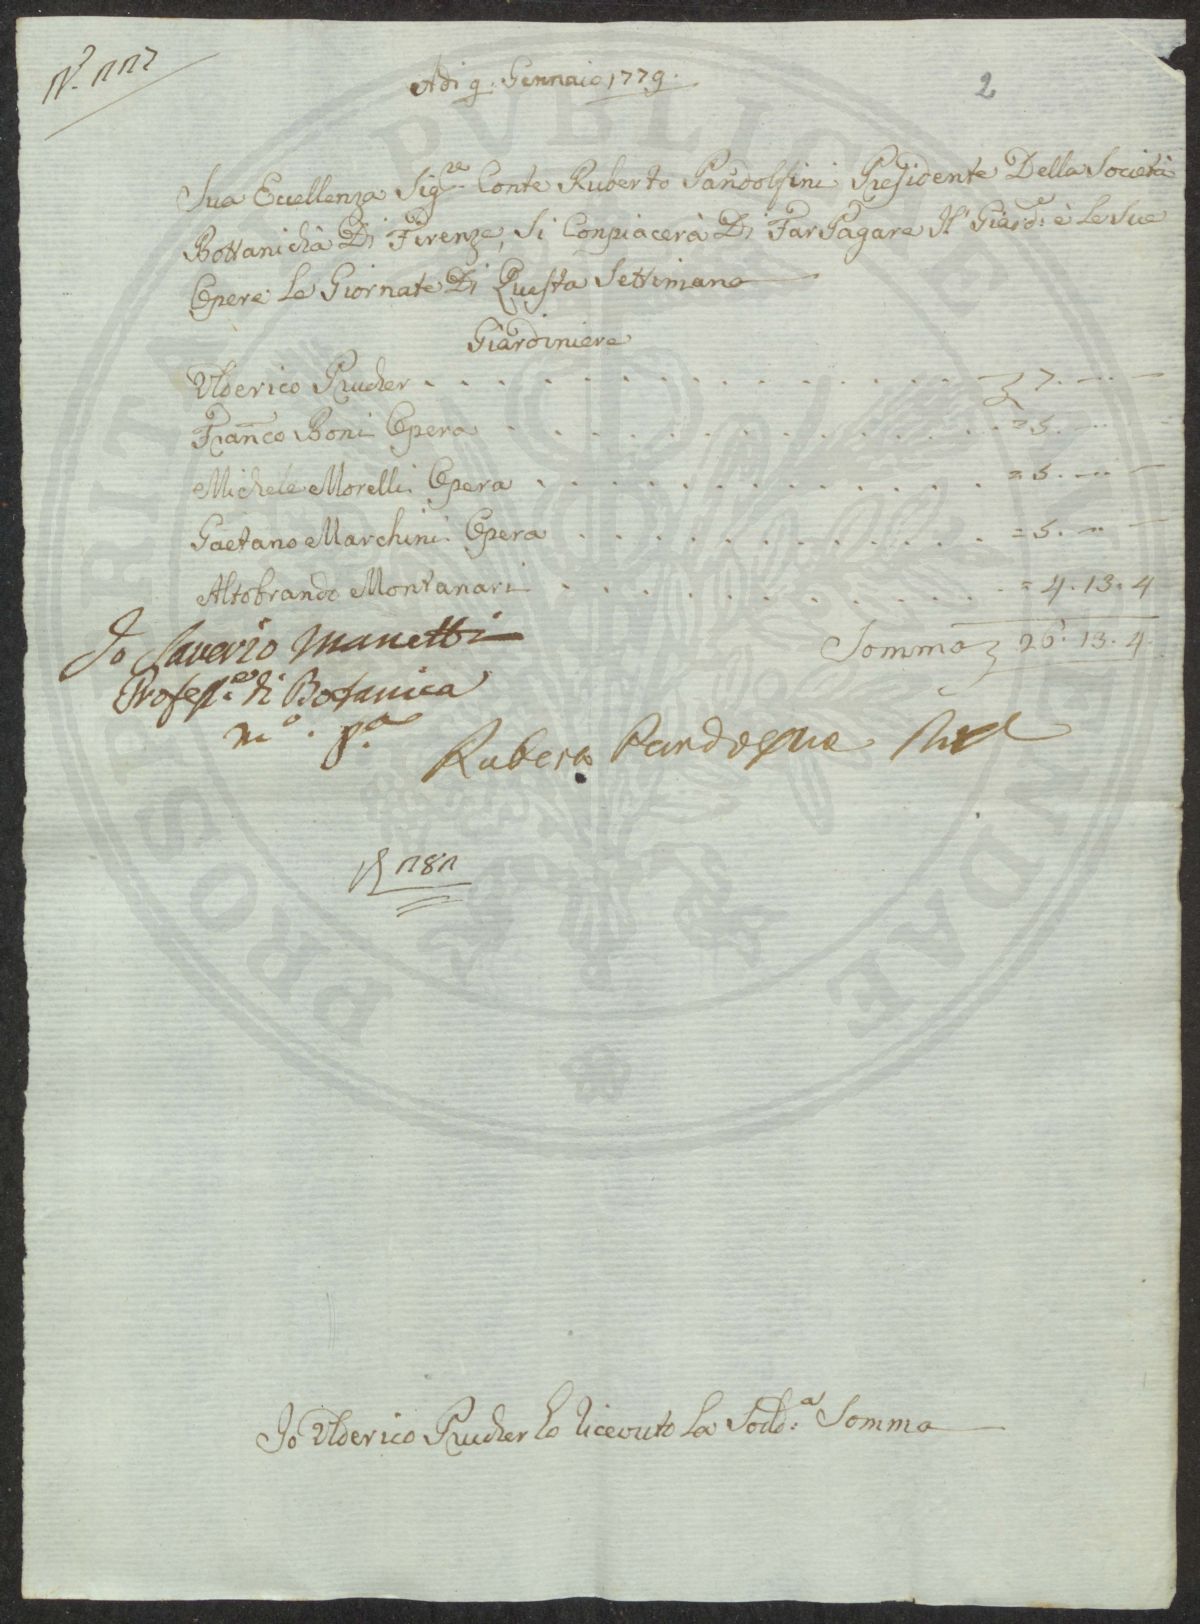 N.º 117
Adi 9. Gennaio 1779.
2
Sua Eccellenza Sig.re Conte Ruberto Pandolfini Presidente Della Società
Bottanichà Di Firenze, Si Conpiacerà Di Far Pagare Il Giard.e è Le Sue
Opere Le Giornate Di Questa Settimana
Giardiniere
Ulderico Prucher . . . . . . . . . . . . . . . . 7. — —
Fran.co Boni Opera . . . . . . . . . . . . . . = 5. —
Michele Morelli Opera . . . . . . . . . . . . . = 5. — —
Gaetano Marchini Opera . . . . . . . . . . . . = 5. — —
Altobrando Montanari . . . . . . . . . . . . . = 4. 13. 4
Somma 26. 13. 4.
Io Saverio Manetti
Profess.e di Botanica
m.o p.a
Ruberto Pandolfini
181
Io Ulderico Prucher ho ricevuto La Sodd.a Somma
PROSPERITATI PUBLICAE AUGENDAE